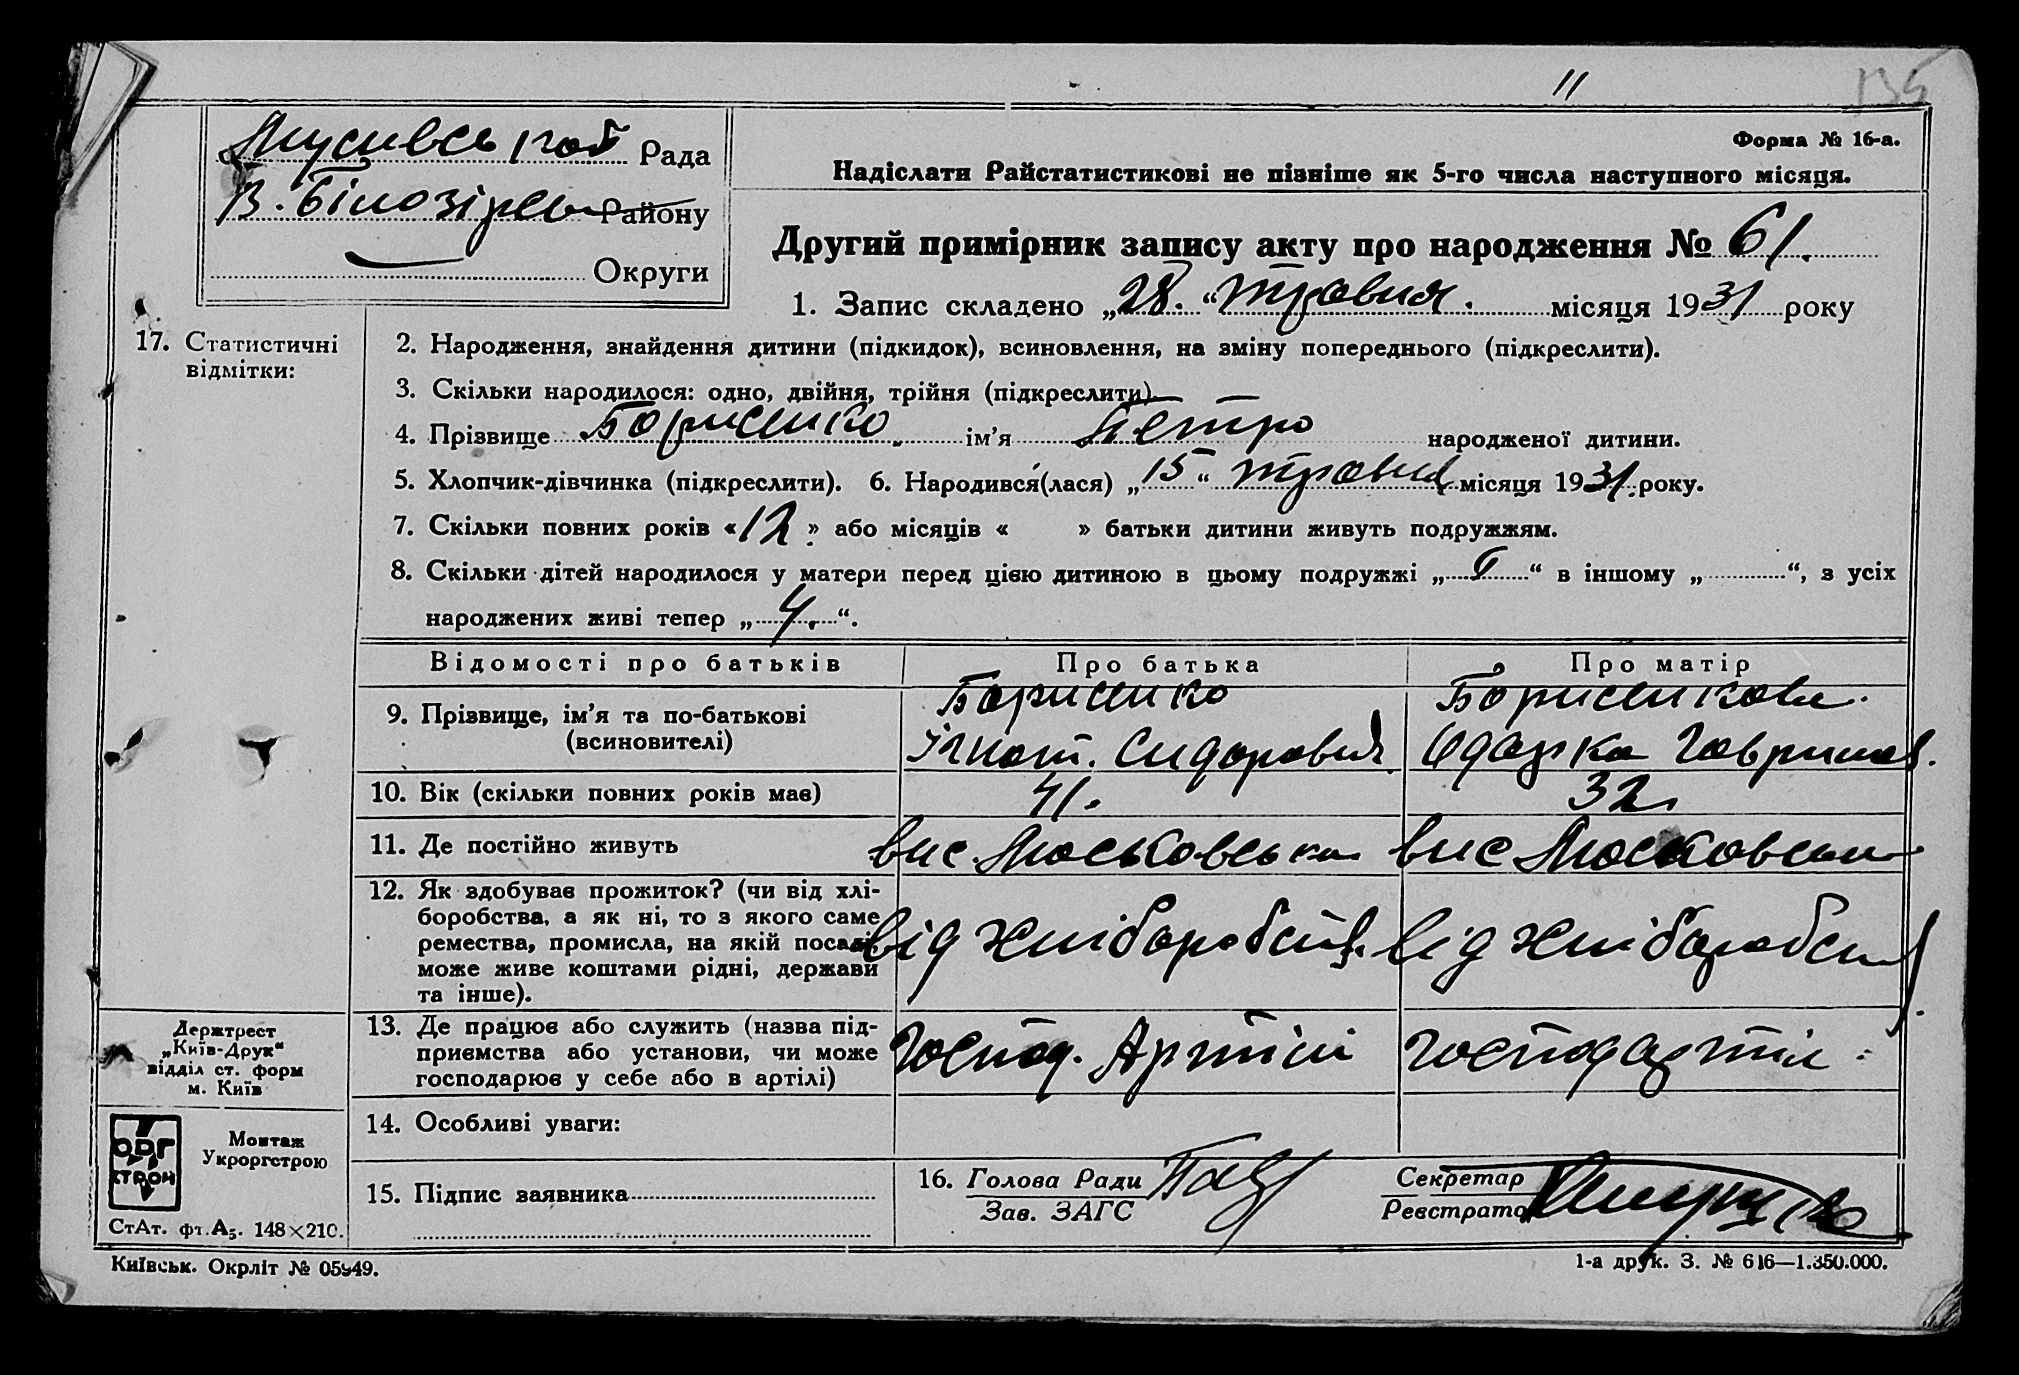 11
135
Форма № 16-а.
Рада
В. Білозірсь Району
Округи
Надіслати Райстатистикові не пізніше як 5-го числа наступного місяця.
Другий примірник запису акту про народження № 61.
1. Запис складено „28.“ травня. місяця 1931 року
17. Статистичні
відмітки:
2. Народження, знайдення дитини (підкидок), всиновлення, на зміну попереднього (підкреслити).
3. Скільки народилося: одно, двійня, трійня (підкреслити).
4. Прізвище Борисенко. ім’я Петро народженої дитини.
5. Хлопчик-дівчинка (підкреслити). 6. Народився(лася) „15“ травня місяця 1931. року.
7. Скільки повних років «12» або місяців « » батьки дитини живуть подружжям.
8. Скільки дітей народилося у матери перед цією дитиною в цьому подружжі „ “ в іншому „ “, з усіх
народжених живі тепер „4.“.
Відомості про батьків Про батька Про матір
9. Прізвище, ім’я та по-батькові
(всиновителі)
Борисенко
Ігнат. Сидорович
Борисенкова.
Одарка Гаврилов.
10. Вік (скільки повних років має) 41. 32.
11. Де постійно живуть вис Московська вис Московська
12. Як здобуває прожиток? (чи від хлі-
боробства, а як ні, то з якого саме
ремества, промисла, на якій посаді,
може живе коштами рідні, держави
та інше).
від хліборобств. від хліборобств
13. Де працює або служить (назва під-
приємства або установи, чи може
господарює у себе або в артілі)
Господ. Артілі господ артіл
14. Особливі уваги:
15. Підпис заявника
16. Голова Ради
Зав. ЗАГС
Секретар
Реєстратор
Держтрест
„Київ-Друк“
відділ ст. форм
м. Київ
ОРГ
СТРОЙ
Монтаж
Укроргстрою
СтАт. фт. А5. 148×210.
Київськ. Окрліт № 05949.
1-а друк. З. № 616—1.350.000.